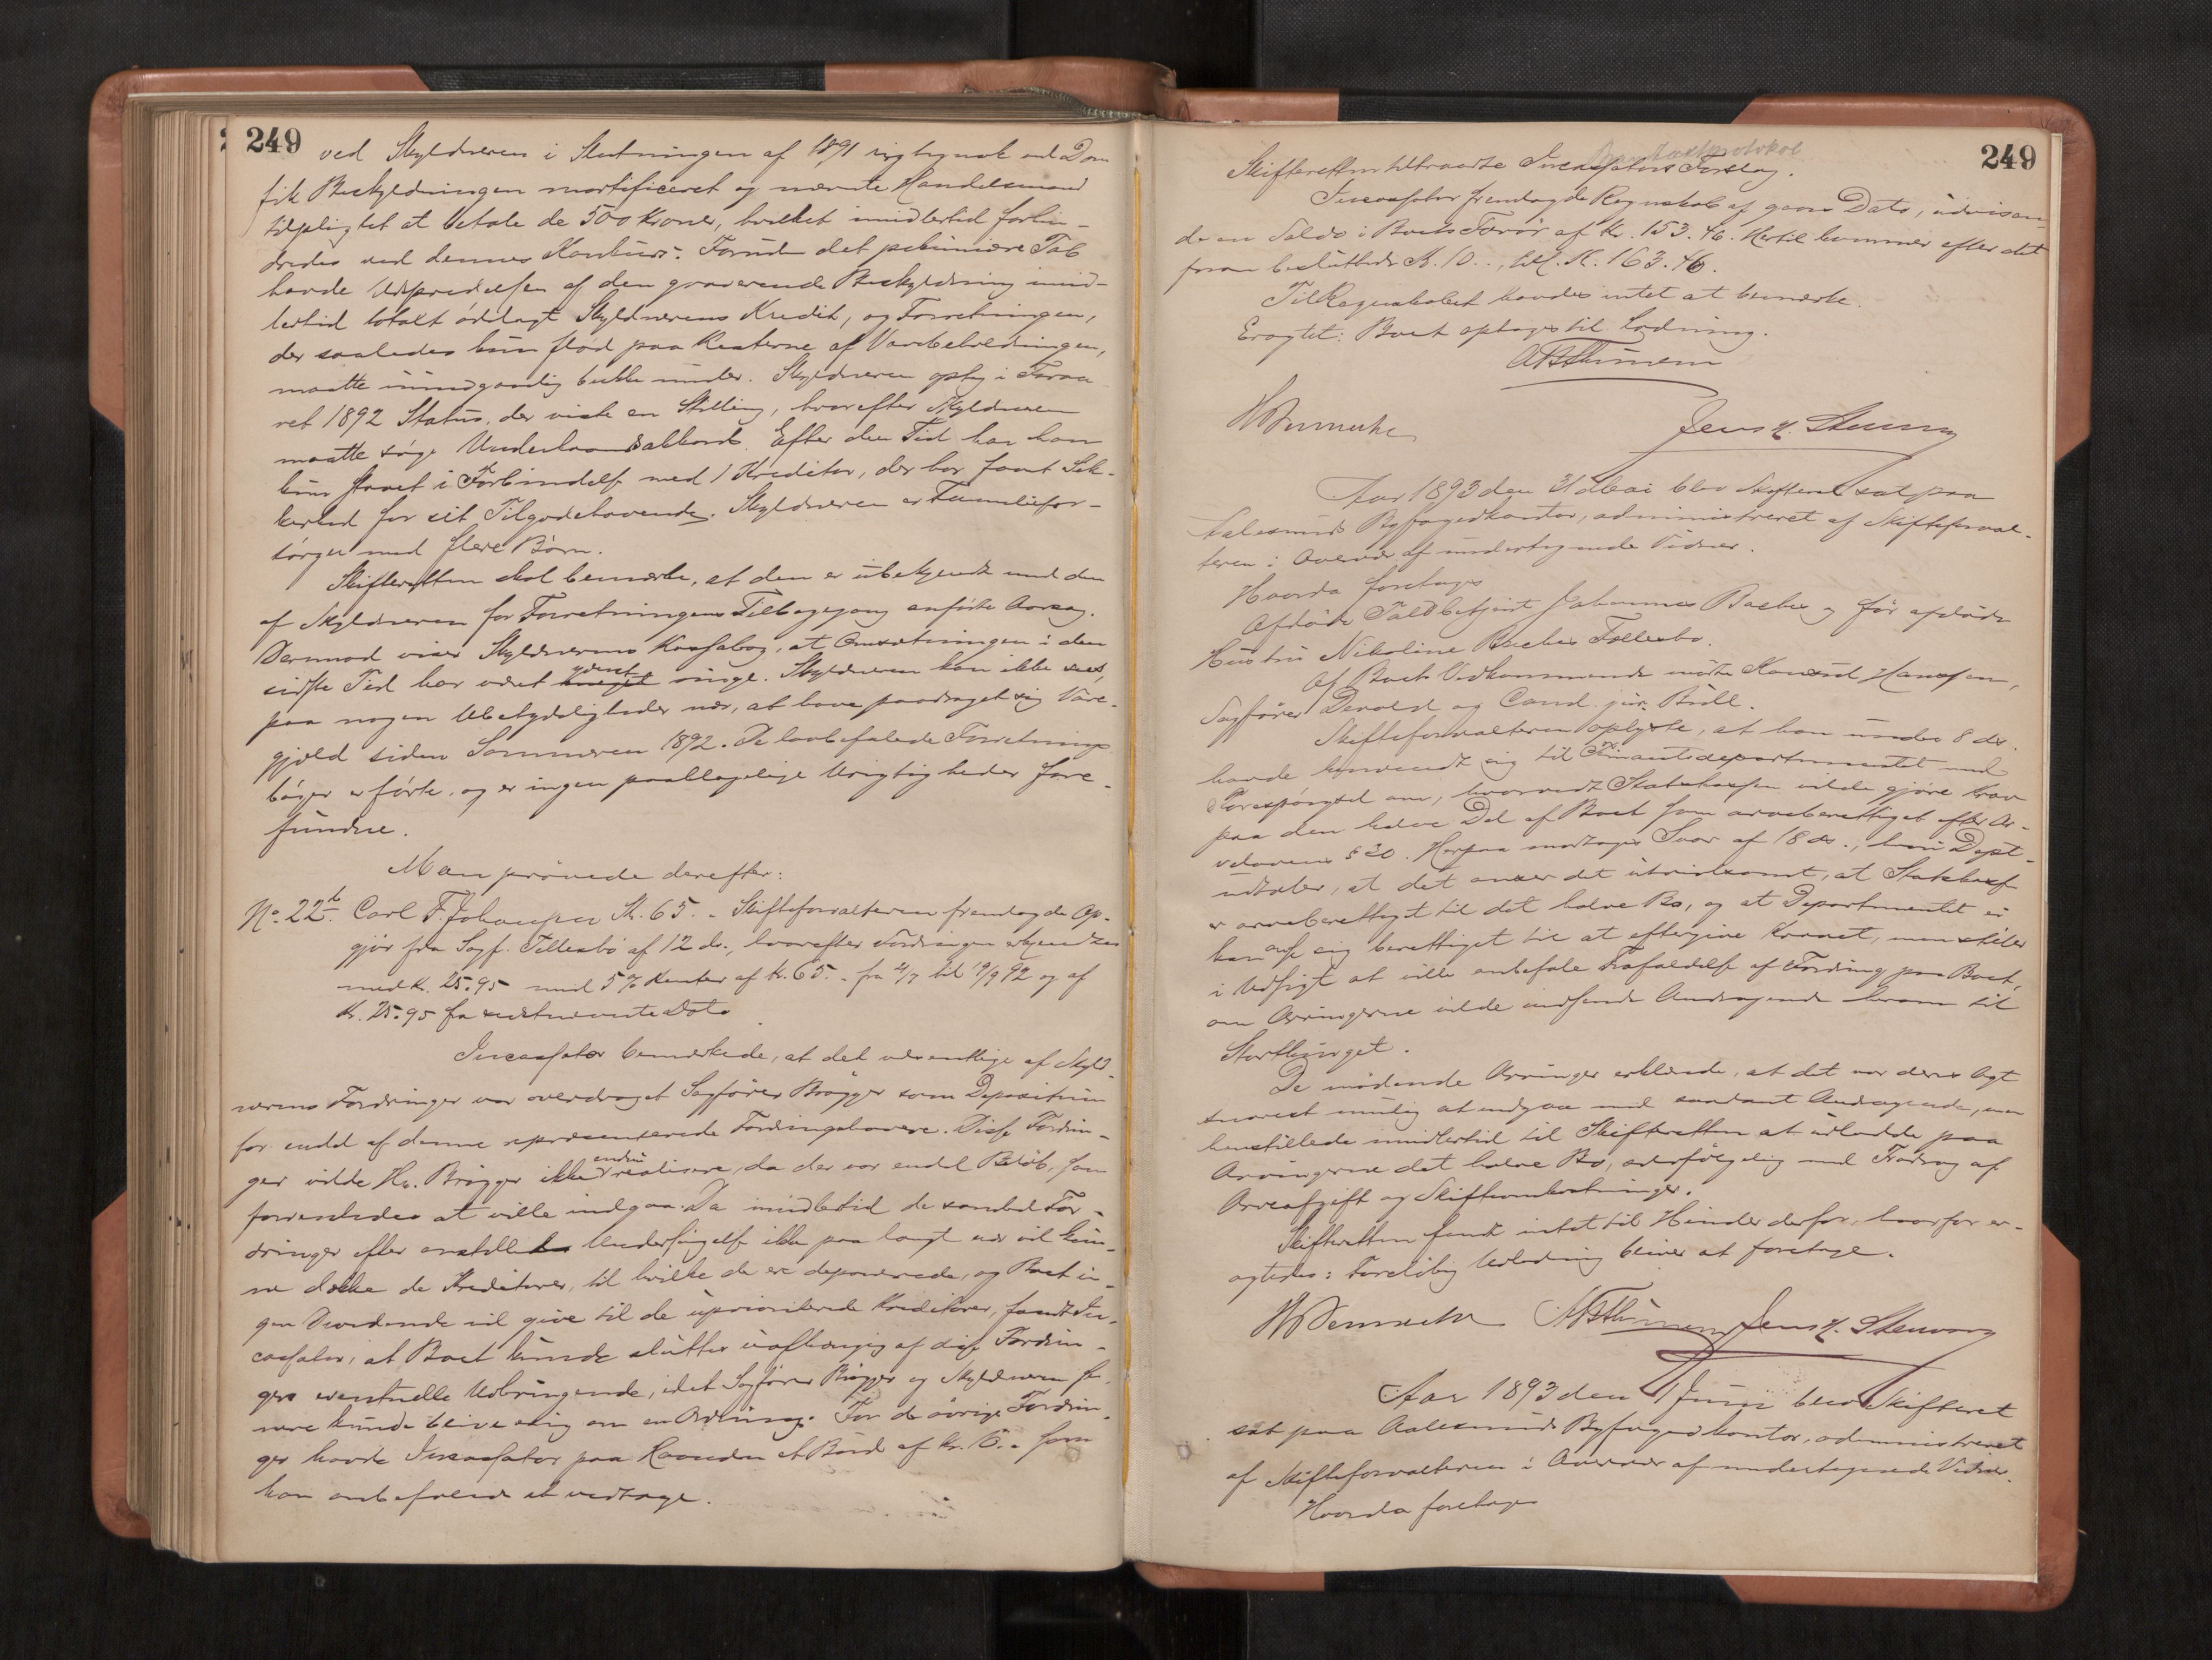 249
ved Skyldneren i Slutningen af 1891 ved Dom
fik Beskyldningen mortificeret og nævnte Handelsmand
tilpligtet at betale de 500 Kroner, hvilket imidlertid forhin-
dredes ved dennes Konkurs. Foruden det pekuniære Tab
havde Udspredelsen af den graverende Beskyldning imid-
lertid totalt ödelagt Skyldnerens Kredit, og Forretningen,
der saaledes kun flöd paa Resterne af Varebeholdningen,
maatte uundgaaelig bukke under. Skyldneren optog i Foraa-
ret 1892 Status, der viste en Stilling, hvorefter Skyldneren
maatte söge Underhaandsakkord. Efter den Tid har han
kun staaet i Forbindelse med 1 Kreditor, der har faaet Sik-
kerhed for sit Tilgodehavende. Skyldneren er Familiefor-
sörger med flere Börn.
Skifteretten skal bemærke, at den er ubekjendt med den
af Skyldneren for Forretningens Tilbagegang anförte Aarsag.
Dermod viser Skyldnerens Kassabog, at Omsætningen i den
sidste Tid har været meget yderst ringe. Skyldneren kan ikke sees,
paa nogen Ubetydeligheder nær, at have paadraget sig Vare-
gjæld siden Sommeren 1892. De lovbefalede Forretnings-
böger er förte, og er ingen paaklagelige Urigtigheder fore-
fundne.
Man prövede derefter:
No. 22b. Carl F. Johansen Kr. 65. - Skifteforvalteren fremlagde Op-
gjör fra Sagf. Tillesbö af 12 ds., hvorefter Fordringen erkjendtes
med Kr. 25.95 med 5% Renter af Kr. 65. - fra 2/7 til 19/9 92 og af
Kr. 25.95 fra sidstnævnte Dato.
Incassator bemærkede, at det væsentlige af Skyld-
nerens Fordringer var overdraget Sagförer Brögger som Depositum
for endel af denne repræsenterede Fordringshavere. Disse Fordrin-
ger vilde Hr. Brögger ikke endnu realisere, da der var endel Belöb, som
forventedes at ville indgaa. Da imidlertid de samtlede For-
dringer efter anstillet Undersögelse ikke paa langt nær vil kun-
ne dække de Kreditorer, til hvilke de er deponerede, og Boet in-
gen Dividende vil give til de upriorterede Kreditorer, fandt In-
cassator, at Boet kunde sluttes uafhængig af disse Fordrin-
gers eventuelle Udbringende, idet Sagförer Brögger og Skyldneren se-
nere kunde blive enig om en Ordning. For de övrige Fordrin-
ger havde Incassator paa Haanden et Bud af Kr. 10. - som
han anbefalede at vedtage.
249
Skifteretten tiltraadte Incassators Forslag.
Incassator fremlagde Regnskab af gaars Dato, udvisen-
de en Saldo i Boets Favör af Kr. 153.46. Hertil kommer efter det
foran besluttede Kr. 10. -, tils. Kr. 163.46.
Til Regnskabet havdes intet at bemærke.
Eragtet: Boet optages til Lodning.
Jens K.
Aar 1893 den 31 Mai blev Skifteret sat paa
Aalesunds Byfogedkontor, administreret af Skifteforval-
teren i Overvær af undertegnede Vidner.
Hvorda foretoges
Afdöde Toldbetjent Johannes Backes og för afdöde
Hustru Nikoline Backes Fællesbo.
Af Boets Vedkommende mötte Konsul Hanssen,
Sagförer Devold og Cand. jur. Bull.
Skifteforvalteren oplyste, at han under 8 ds.
havde henvendt sig til Finantsdepartementet med
Forespörgsel om, hvorvidt Statskassen vilde gjöre Krav
paa den halve Del af Boet som arveberettiget efter Ar-
velovens § 30. Herpaa modtoges Svar af 18 ds., hvori Dept.
udtaler, at det anser det utvilsomt, at Statskassen
er arveberettiget til det halve Bo, og at Departementet ei
kan anse sig berettiget til at eftergive Kravet, men stiller
i Udsigt at ville anbefale Frafaldelse af Fordring paa Boet,
om Arvingerne vilde indsende Andragende herom til
Storthinget.
De mödende Arvinger erklærede, at det var deres Agt
snarest mulig at indgaa med saadant Andragende, men
henstillede imidlertid til Skifteretten at udlodde paa
Arvingerne det halve Bo, selvfölgelig med Fradrag af
Arveafgift og Skifteomkostninger.
Skifteretten fandt intet til Hinder derfor, hvorfor er-
agtedes: Foreløbig Udlodning bliver at foretage.
Jens K.
Aar 1893 den 1 Juni blev Skifteret
sat paa Aalesunds Byfogedkontor, administreret
af Skifteforvalteren i Overvær af undertegnede Vidner.
Hvorda foretoges